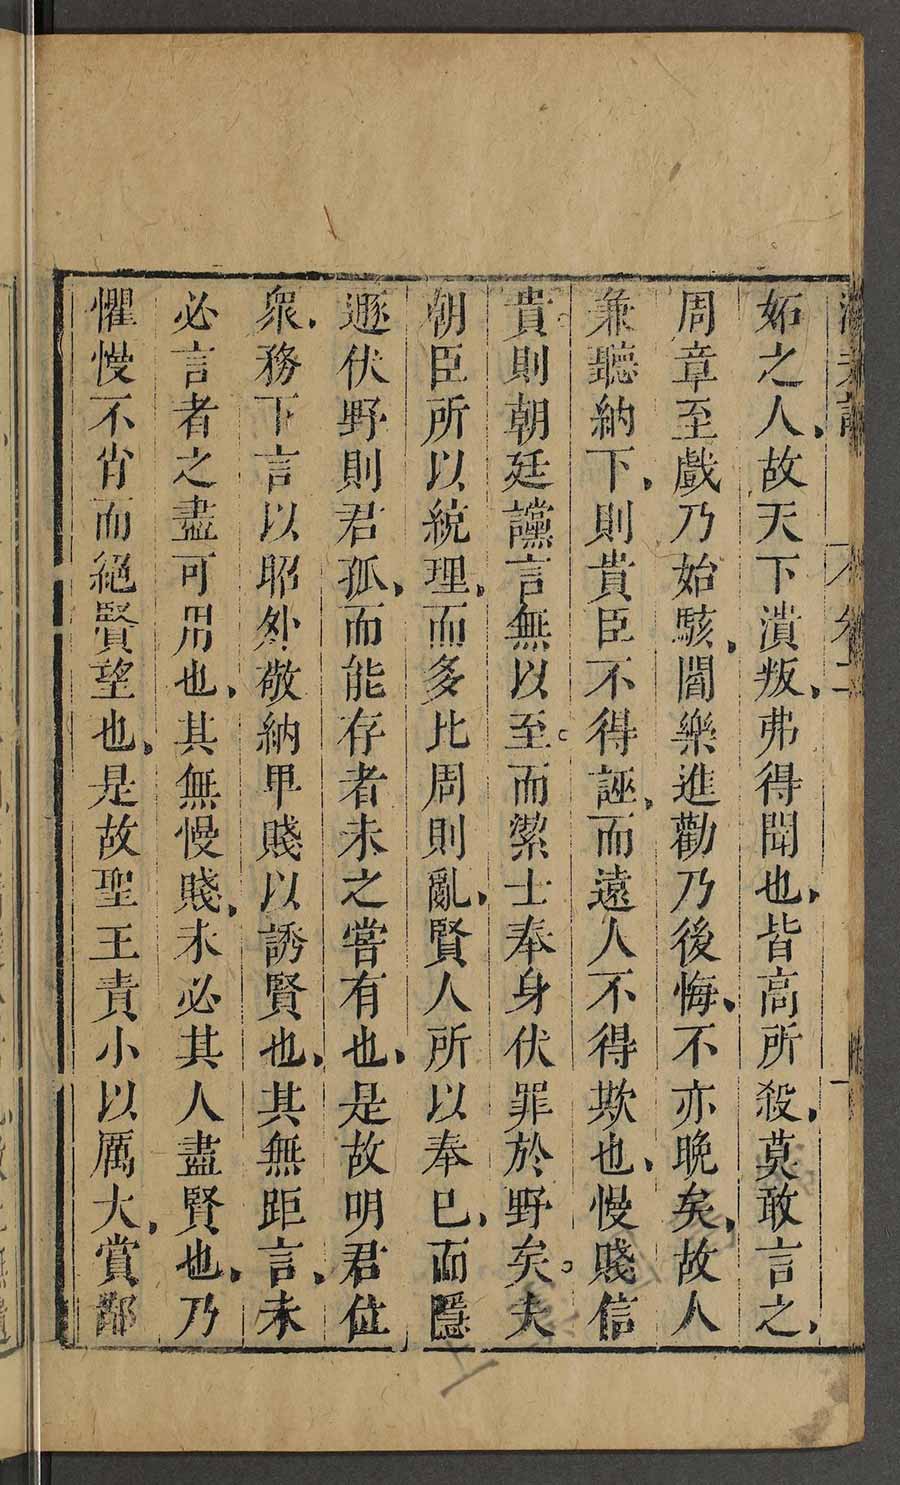 妬之人故天下潰叛弗得聞也皆高所殺莫敢言之
周章至戲乃始駭閻樂進勸乃後悔不亦晚矣故人
兼聽納下則貴臣不得誣而遠人不得欺也慢賤信
貴則朝廷讜言無以至而絜士奉身伏罪於野矣夫
朝臣所以統理而多比周則亂賢人所以奉已而隱
遯伏野則君孤而能存者未之嘗有也是故明君位
衆務下言以昭外敬納甲賤以誘賢也其無距言未
必言者之盡可用也其無慢賤未必其人盡賢也乃
懼慢不肖而絕賢望也是故聖王責小以厲大賞鄙